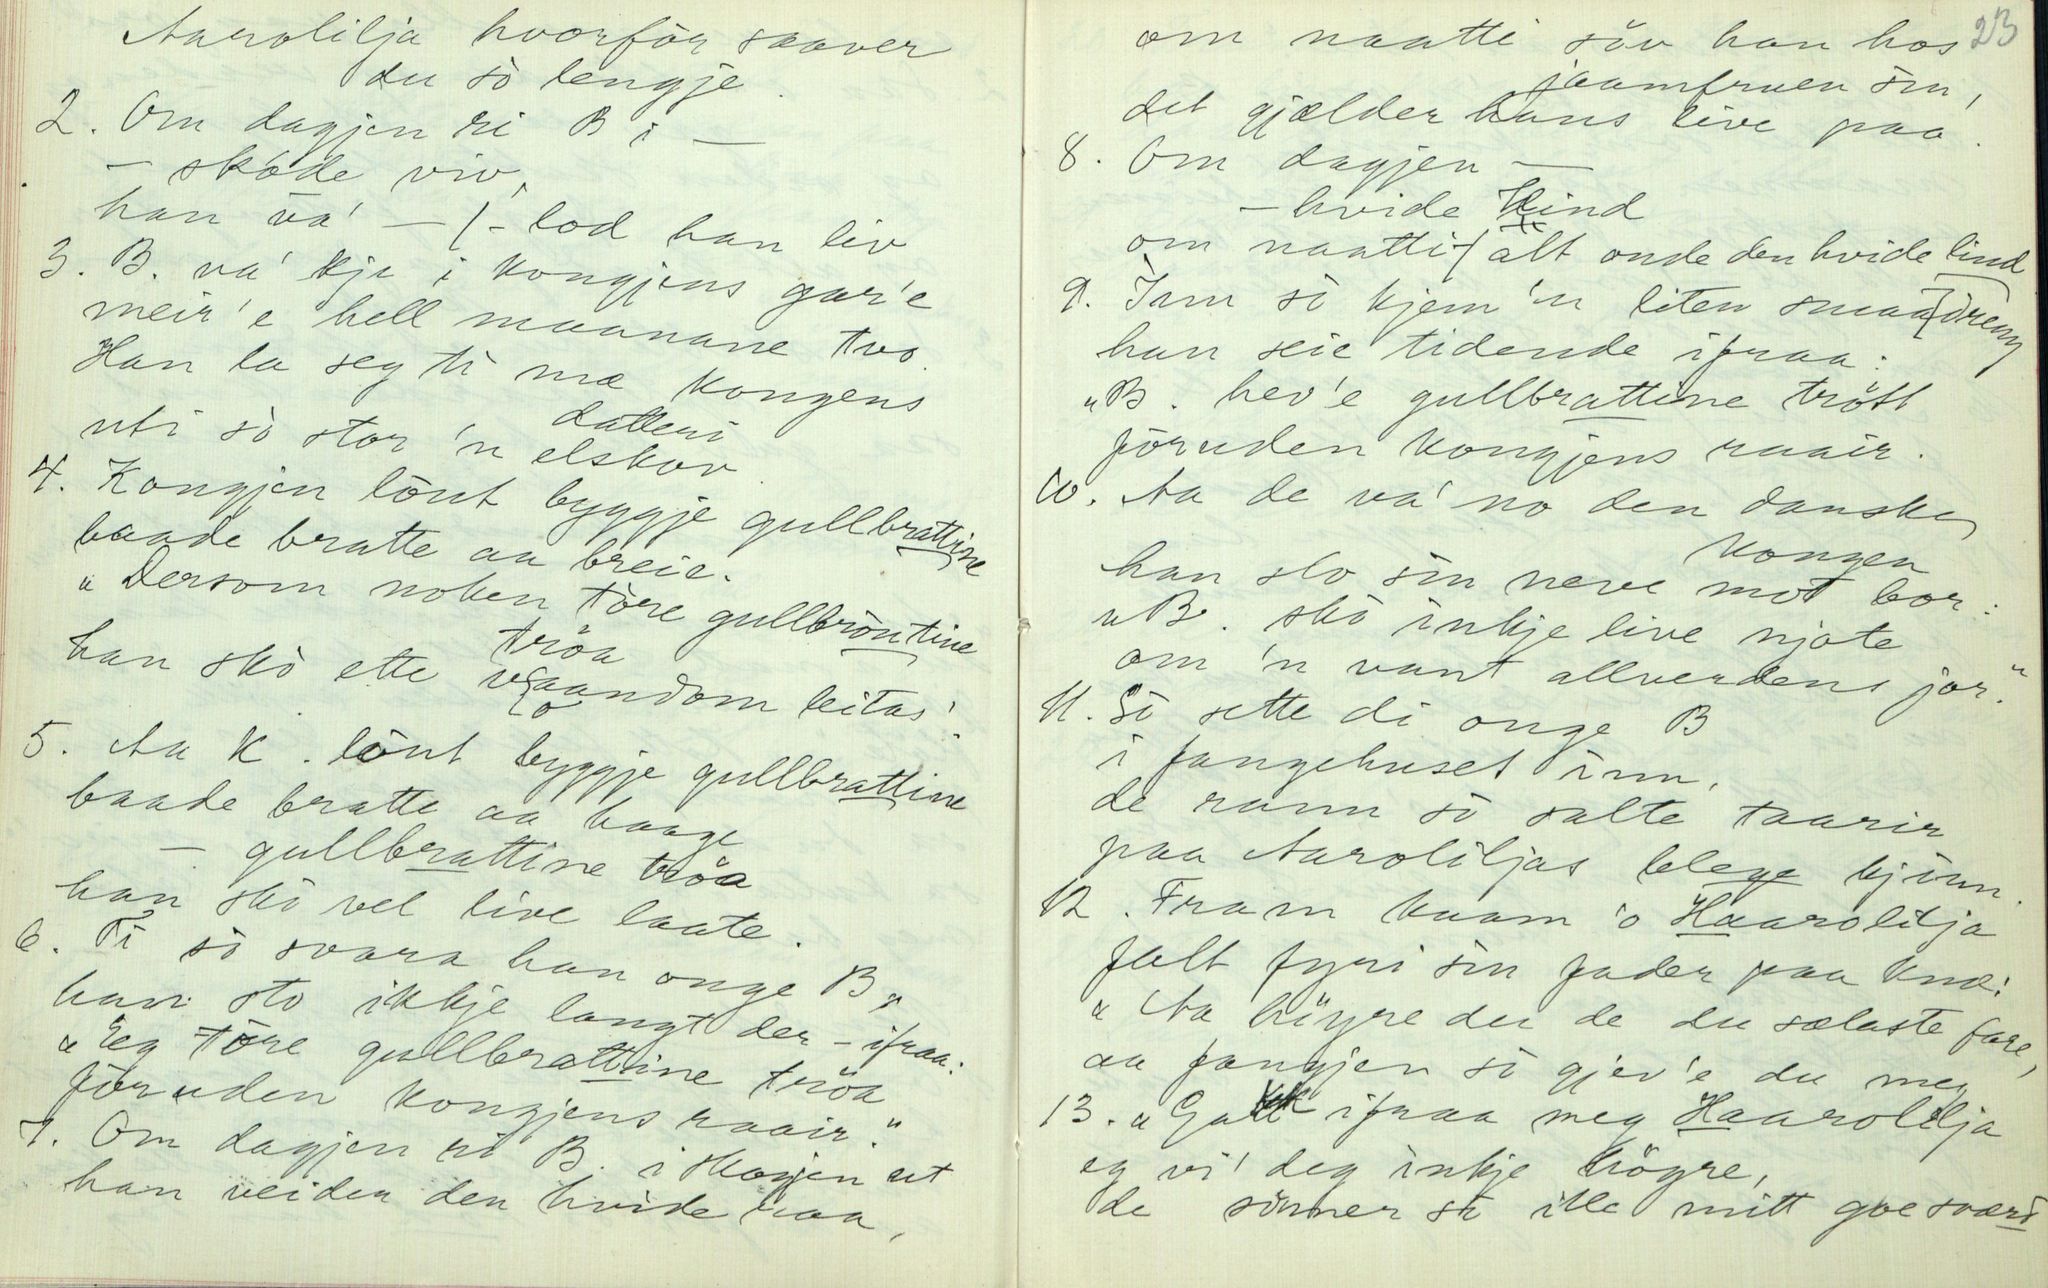 Aarolilja hvorför saaver
du sò lengje.
2. Om dagjen ri B i —
— skóde viv,
han va' — /- lod han liv
3. B. va' kje i kongjens gar'e
meir 'e hell maanane tvo.
Han la seg ti mæ kongens
datteri
uti sò stor 'n elskov
4. Kongjen lönt byggje gullbrattine
baade bratte aa breie.
"Dersom noken töre gullbröntine
tröa
han skò ette vaandom leitas'
o
5. Aa K. lönt byggje gullbrattine
baade bratte aa haage
— gullbrattine tröa
han skò vel live laate.
6. Ti sò svara han onge B,
han sto ikkje langt der-ifraa:
"Eg töre gullbrattine tröa
föruden kongjens raair."
7. Om dagjen ri B. i skogjen ut
han veider den hvide raa,
23
om naatti söv han hos
jaamfruen sin,
det gjælder hans live paa.
8. Om dagjen —
— hvide Hind
om naatti -/ alt onde den hvide lind
9. Inn sò kjem 'n liten smaadreng
han seie tidende ifraa:
"B. hev'e gullbrattine trött
föruden kongjens raair.
10. Aa de va' no den danske
kongen
han slo sin neve mot bor:
"B. skò inkje live njote
om 'n vant allverdens jor."
11. Sò sette di onge B
i fangehuset inn,
de rann sò salte taarir
paa Aaroliljas blege kjinn.
12. Fram kaam 'o Haarolilja
falt fyri sin fader paa knæ:
"Aa höyre du de du sælaste fare,
aa fangjen sò gjev'e du meg
13. "Gakk ifraa meg Haarolilja
eg vi' deg inkje högre,
de sömer sò ille mitt goe sværd